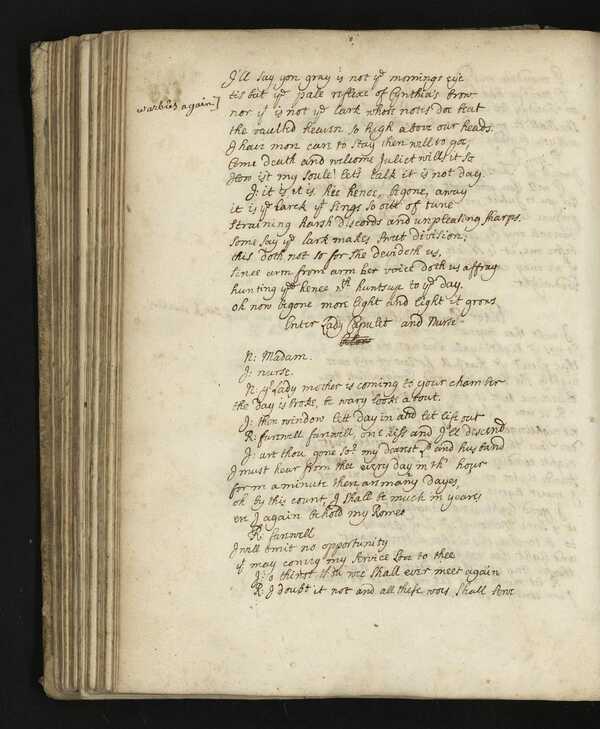 I'll say yon gray is not ye mornings eye
tis but ye pale reflexe of Cynthia's brow
warbles again]
nor yt is not ye lark whose notes doe beat
the vaulted heaven so high above our heads.
I have more care to stay then will to goe,
Come death and welcome Juliet will it so
How ist my soule let's talk it is not day
J: it is it is hee hence, begone, away
it is ye larck yt sings so out of tune
straining harsh discords and unpleasing sharps.
some say ye lark makes sweet division;
this doth not so for she devideth us,
since arm from arm her voice doth us affray
hunting thee hence wth huntsup to ye day.
oh now begone more light and light it grows
Enter Lady Capulet and Nurse
below
N: Madam.
J: nurse.
N: yr Lady mother is coming to your chamber
the day is broke, be wary look about.
J: then window lett day in and let life out
R: farwell farwell, one kiss and I'll descend
J: art thou gone so? my dearest Ld and husband
I must hear from thee every day in th' hour
for in a minute there are many dayes,
oh by this count I shall be much in years
ere I again behold my Romeo
R: farwell
I will omit no opportunity
yt may convey my service love to thee
J: o thinkst thou wee shall ever meet again
R: I doubt it not and all these woes shall serve